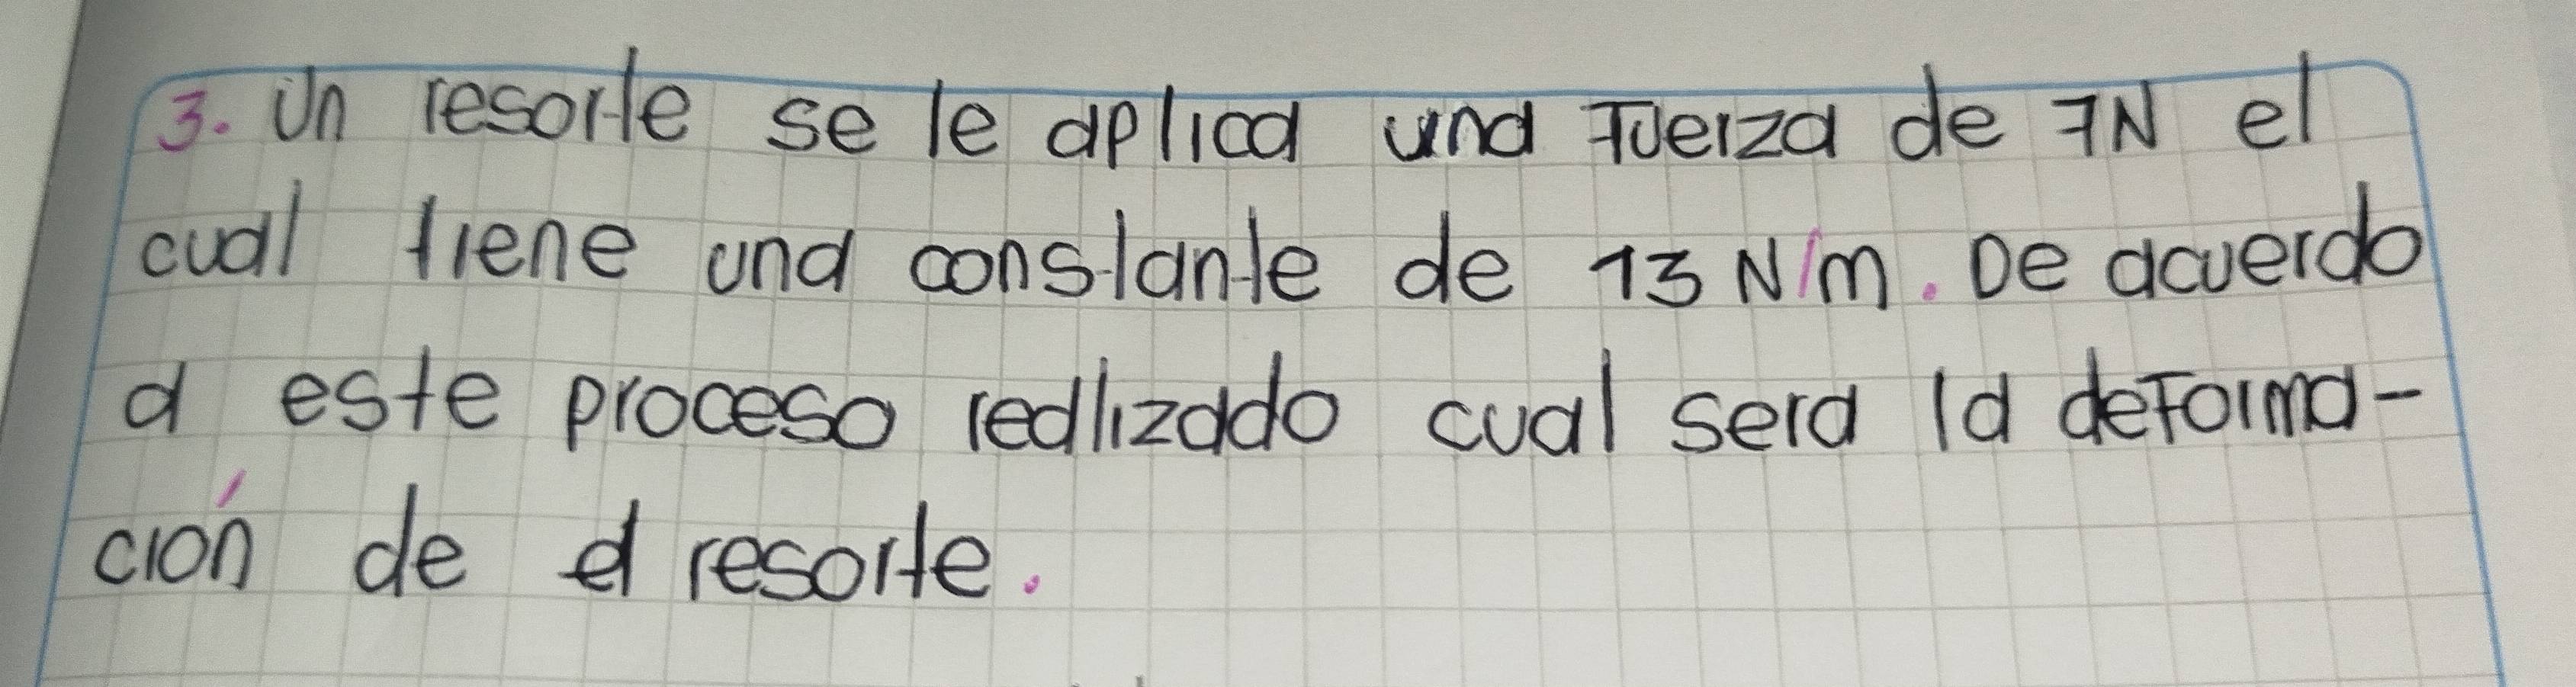 3. Un resorte se le aplica una Fuerza de 7N el
cual tiene una constante de 13 N/m. De acuerdo
a este proceso realizado cual sera la deforma-
ción de el resorte.